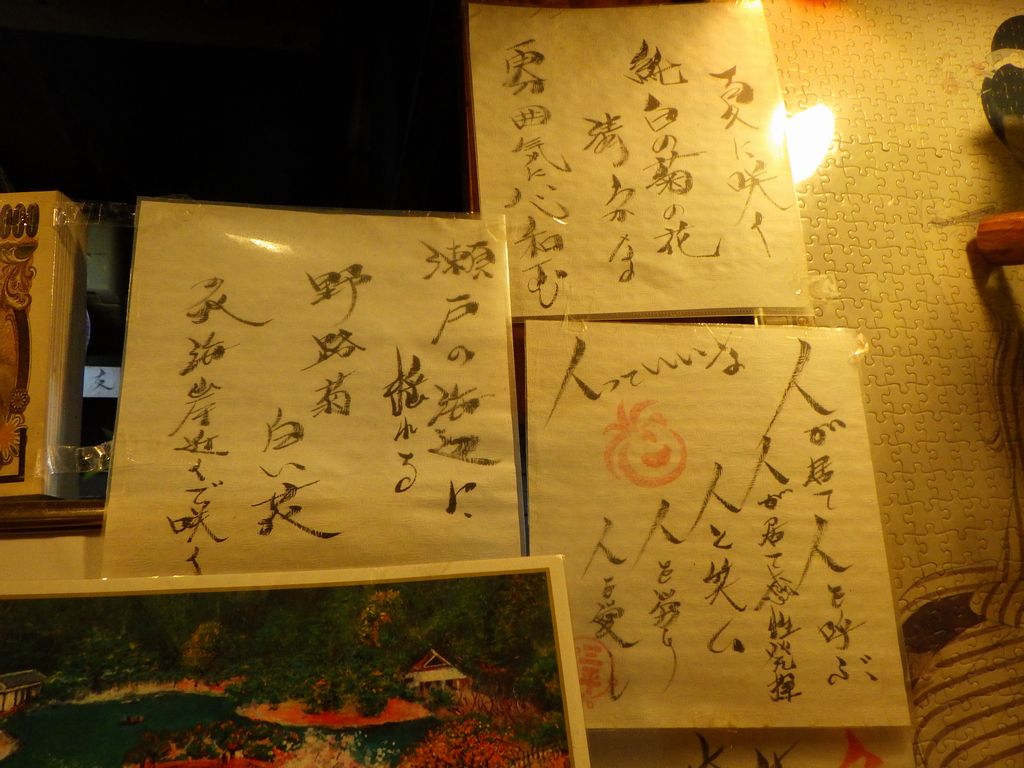 夏に咲く
純白の菊の花
清らかな
雰囲気に心和む
瀬戸の海辺に
揺れる
野路菊
白い花
海岸近くで咲く
人が居て人を呼ぶ
人が居て感性発揮
人と笑ふ
人を
人を愛し
人っていいな